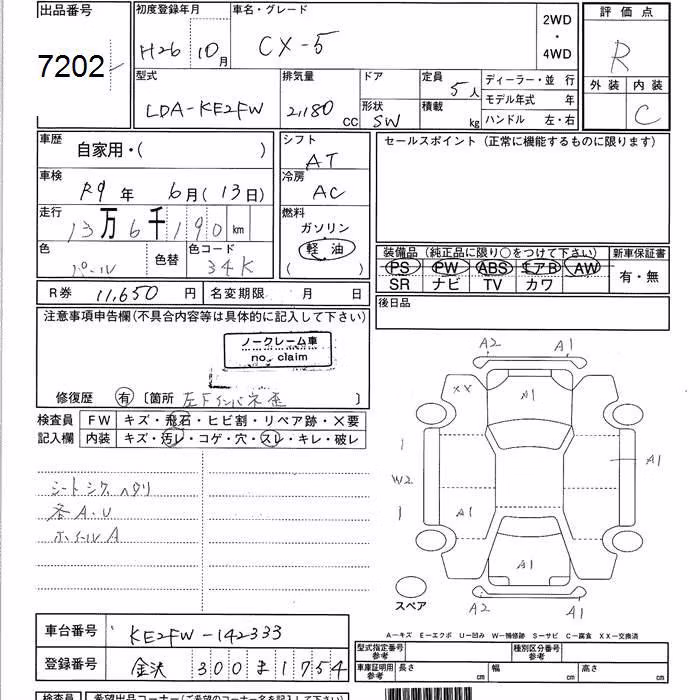 出品番号 初度登録年月 車名・グレード 2WD・4WD 評価点
7202 H26 10月 CX-5 R
型式 排気量 ドア 定員 5人 ディーラー・並 行 外装 内装
LDA-KE2FW 2,180 CC 形状 SW 積載 kg モデル年式 年 C
ハンドル 左・右
車歴 自家用・( ) シフト AT セールスポイント (正常に機能するものに限ります)
車検 R9年 6月(13日) 冷房 AC
走行 13万6千190km 燃料 ガソリン 軽油 ( )
色 パール 色替 色コード 34K
装備品 (純正品に限り○をつけて下さい) 新車保証書
PS PW ABS エアB AW 有・無
SR ナビ TV カワ
R券 11,650円 名変期限 月 日 後日品
注意事項申告欄(不具合内容等は具体的に記入して下さい)
ノークレーム車
no claim
修復歴 有 〔箇所 〕
検査員 FW キズ・飛石・ヒビ割・リペア跡・×要
記入欄 内装 キズ・汚レ・コゲ・穴・スレ・キレ・破レ
シートシワ ヘタリ
各A・U
ホイールA
A2 A1
XX A1
1
W2 A1
1 A1
A1
A2 A1
スペア
A-キズ E-エクボ U-凹み W-補修跡 S-サビ C-腐食 XX-交換済
車台番号 KE2FW-142333
登録番号 金沢 300 ま 1754
型式指定番号 参考 種別区分番号 参考
車庫証明用 参考 長さ cm 幅 cm 高さ cm
検査員 希望出品コーナー(ご希望のコーナー名を記入下さい)